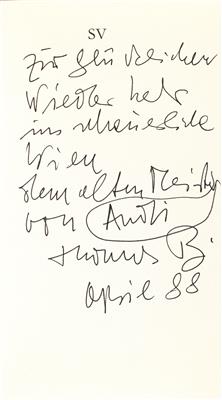 SV
Zur glücklichen
Wiederkehr
ins schauerliche
Wien
dem alten Meister
von Andi
Thomas B.
April 88